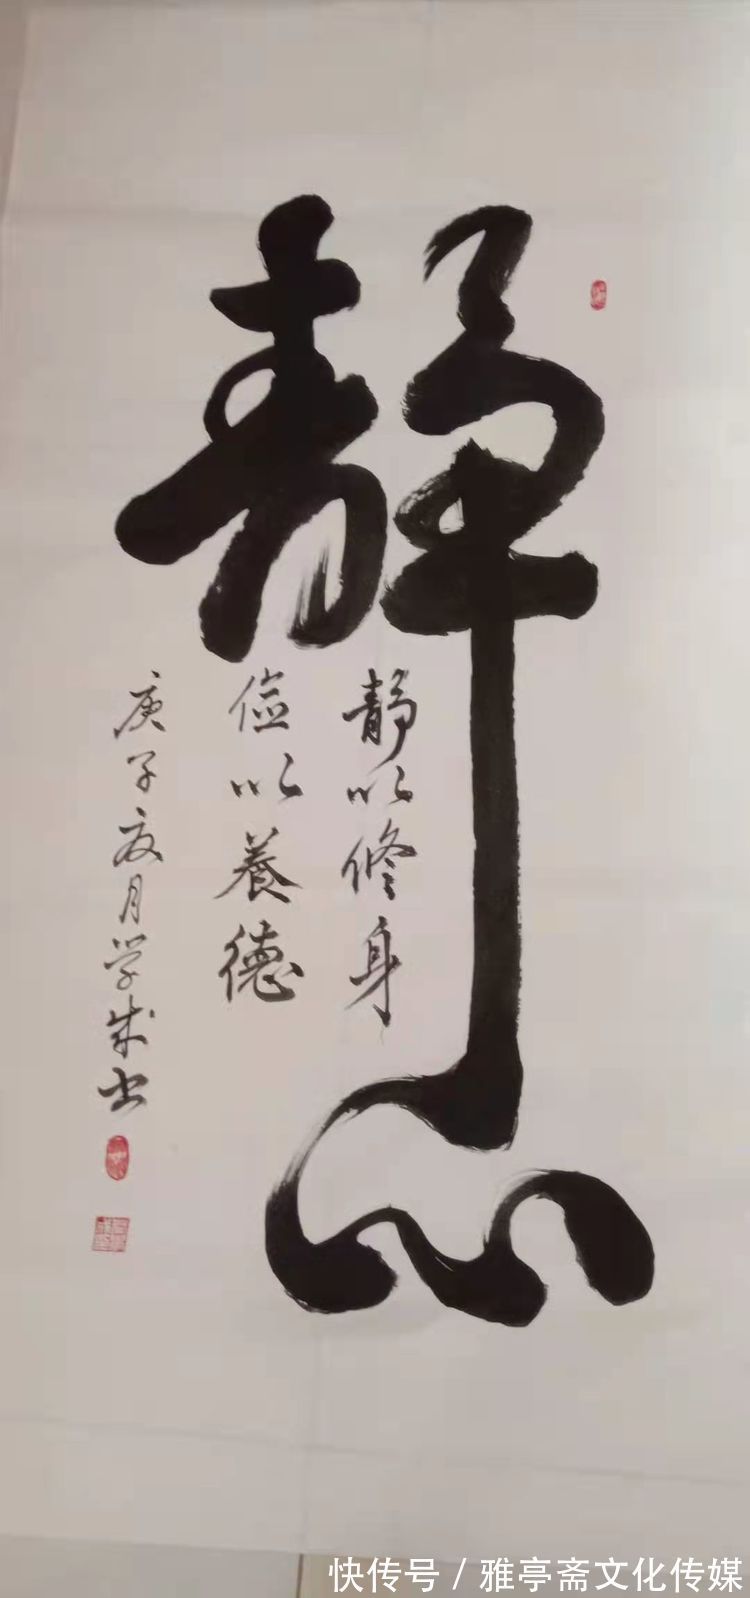 静心
静以修身
俭以養德
庚子夏月学成书
快传号 / 雅亭斋文化传媒